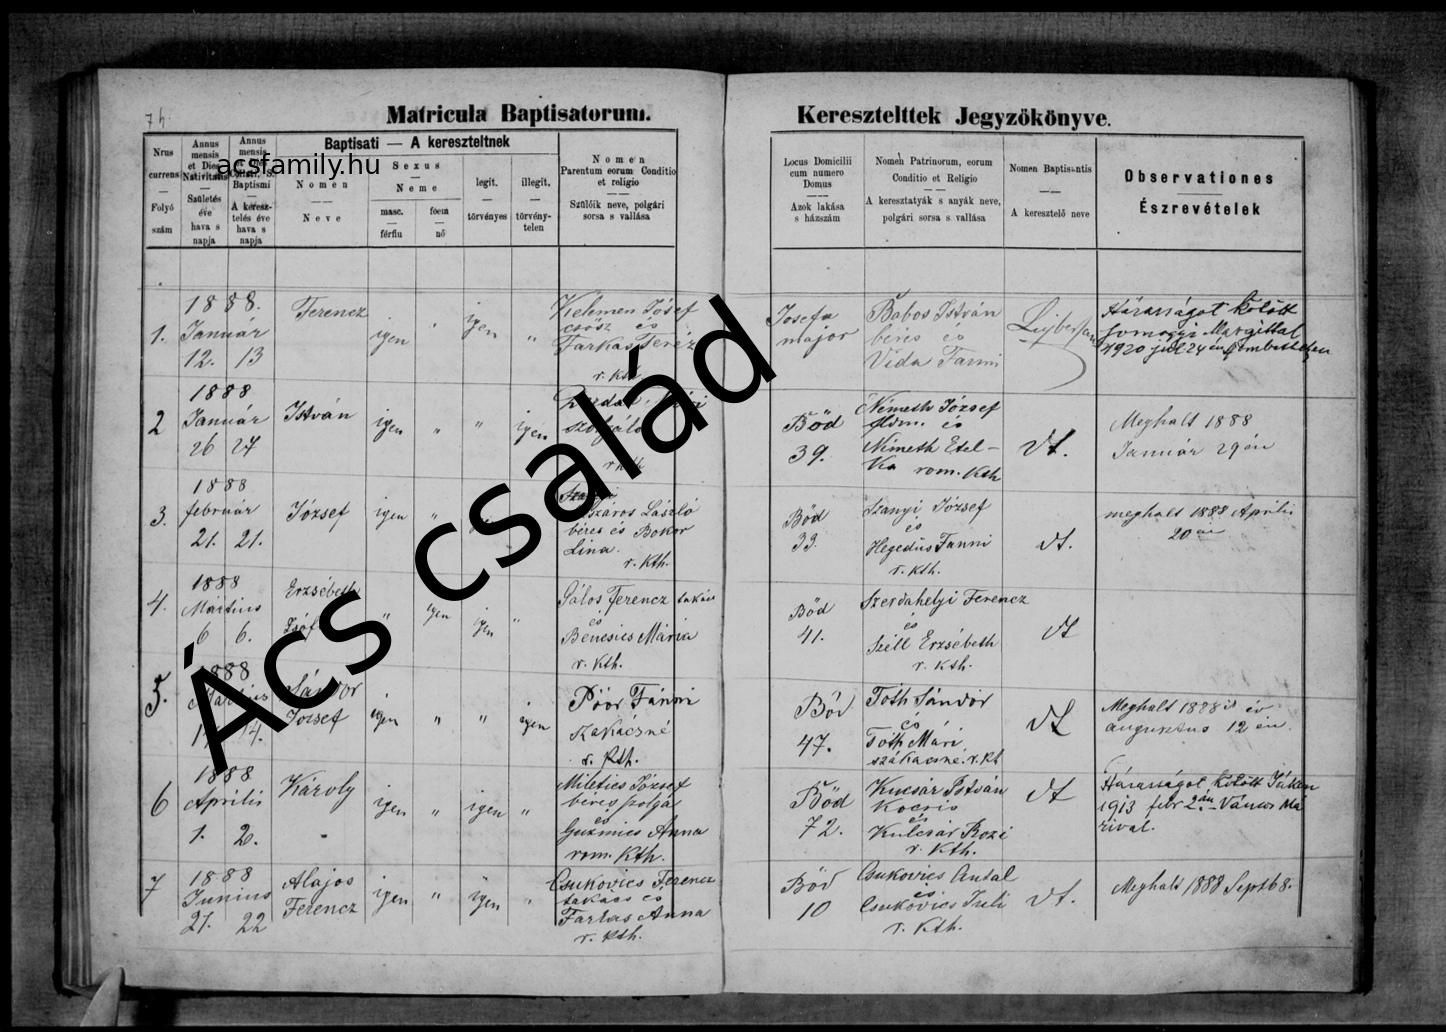 74.
Matricula Baptisatorum.
Nrus
currens
Folyó
szám
Annus
mensis
et Dies
Nativitatis
Születés
éve
hava s
napja
Annus
mensis
Baptismi
A keresz-
telés éve
hava s
napja
Baptisati — A kereszteltnek
Nomen
Neve
Sexus
Neme
masc.
férfiu
foem
nő
legit.
törvényes
illegit.
törvény-
telen
Nomen
Parentum eorum Conditio
et religio
Szülőik neve, polgári
sorsa s vallása
acsfamily.hu
Ács család
1.
1888.
Január
12. 13
Ferencz
igen " igen "
Kelemen József
csősz és
Farkas Teréz
r. kth
2
1888
Január
26 27
István
igen " " igen
szolgáló
r kth
3.
1888
február
21. 21.
József
igen "
Száros László
béres és Bokor
Lina.
r. kth.
4.
1888
Mártius
6 6.
Erzsébeth
Zsófi
" igen igen "
Pálos Ferencz takács
és
Bencsics Mária
r. kth.
5.
1888
Sándor
József
igen " " igen
Póór Fánni
Szakácsné
r. kth.
6
1888
Április
1. 2.
Károly
igen " igen "
Miletics József
béres szolga
és
Guzmics Anna
rom. kth.
7
1888
Junius
21. 22
Alajos
Ferencz
igen " igen "
Csukovics Ferencz
takács és
Farkas Anna
r. kth.
Keresztelttek Jegyzökönyve.
Locus Domicilii
cum numero
Domus
Azok lakása
s házszám
Nomen Patrinorum, eorum
Conditio et Religio
A keresztatyák s anyák neve,
polgári sorsa s vallása
Nomen Baptisantis
A keresztelő neve
Observationes
Észrevételek
Josefa
major
Babos István
béres és
Vida Fanni
Házasságot kötött
Somogyi Margittal
1920 jul 24 én Szombathelyen
Böd
39.
Németh József
és
Németh Etel-
ka rom. kth
dt.
Meghalt 1888
Január 29én
Böd
33.
Szanyi József
és
Hegedüs Fanni
r. kth.
dt.
meghalt 1888 Április
20 án
Böd
41.
Szerdahelyi Ferencz
és
Széll Erzsébeth
r. kth.
dt
Böd
47.
Tóth Sándor
és
Tóth Mári
szakácsné. r. kt
dt
Meghalt 1888 is év
augusztus 12 én
Böd
72.
Kucsár István
Kocsis
és
Kulcsár Rozi
r. kth.
dt
Házasságot kötött Jákon
1913 febr 2 án Váncsa Má
rival.
Böd
10
Csukovics Antal
és
Csukovics Juli
r. kth.
dt.
Meghalt 1888 Septb 8.